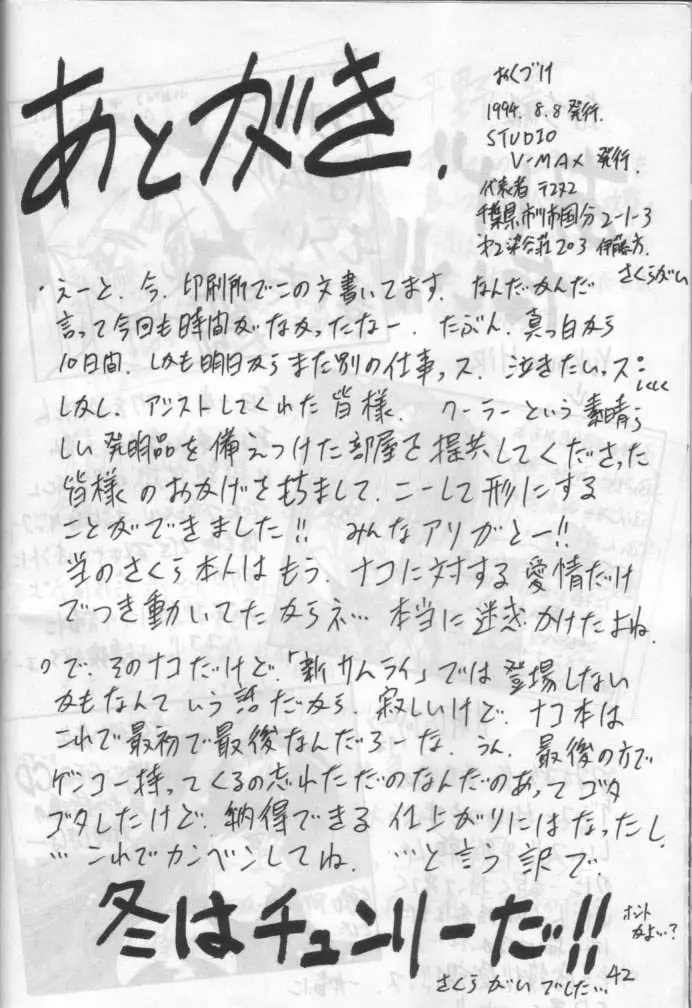 あとがき.
おくづけ
1994. 8. 8 発行.
STUDIO
V-MAX 発行.
代表者 テヌヌ
千葉県市川市国分2-1-3
第2染谷荘203 伊藤方.
さくらがい
・えーと. 今. 印刷所でこの文書いてます. なんだかんだ
言って今回も時間がなかったなー. たぶん. 真っ白から
10日間. しかも明日からまた別の仕事っス. 泣きたいっス:
しかし. アシストしてくれた皆様. クーラーという素晴ら
しい発明品を備えつけた部屋を提供してくださった
皆様のおかげを持ちまして. こーして形にする
ことができました!! みんなアリがとー!!
当のさくら本人はもう. ナコに対する愛情だけ
でつき動いてたからネ… 本当に迷惑かけたよね.
○で. そのナコだけど.「新サムライ」では登場しない
かもなんていう話だから. 寂しいけど. ナコ本は
これで最初で最後なんだろーな. うん. 最後の方で
ゲンコー持ってくるの忘れただのなんだのあってゴタ
ゴタしたけど. 納得できる仕上がりにはなったし.
… これでカンベンしてね. …と言う訳で.
冬はチュンリーだ!!
ホント かよぃ?
さくらがいでした…
42